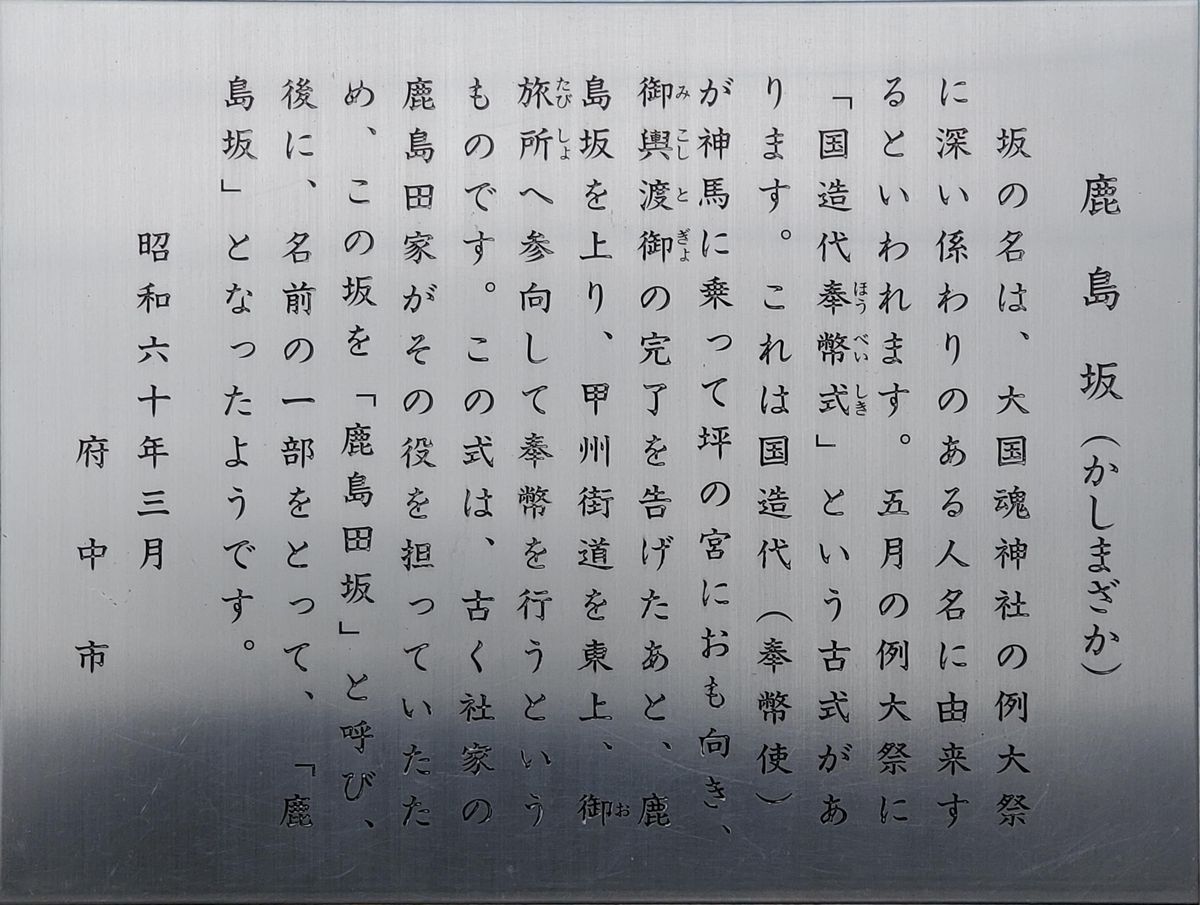 鹿島坂（かしまざか）
坂の名は、大国魂神社の例大祭
に深い係わりのある人名に由来す
るといわれます。五月の例大祭に
「国造代奉幣式」という古式があ
ります。これは国造代（奉幣使）
が神馬に乗って坪の宮におも向き、
御輿渡御の完了を告げたあと、鹿
島坂を上り、甲州街道を東上、御
旅所へ参向して奉幣を行うという
ものです。この式は、古く社家の
鹿島田家がその役を担っていたた
め、この坂を「鹿島田坂」と呼び、
後に、名前の一部をとって、「鹿
島坂」となったようです。
昭和六十年三月
府中市